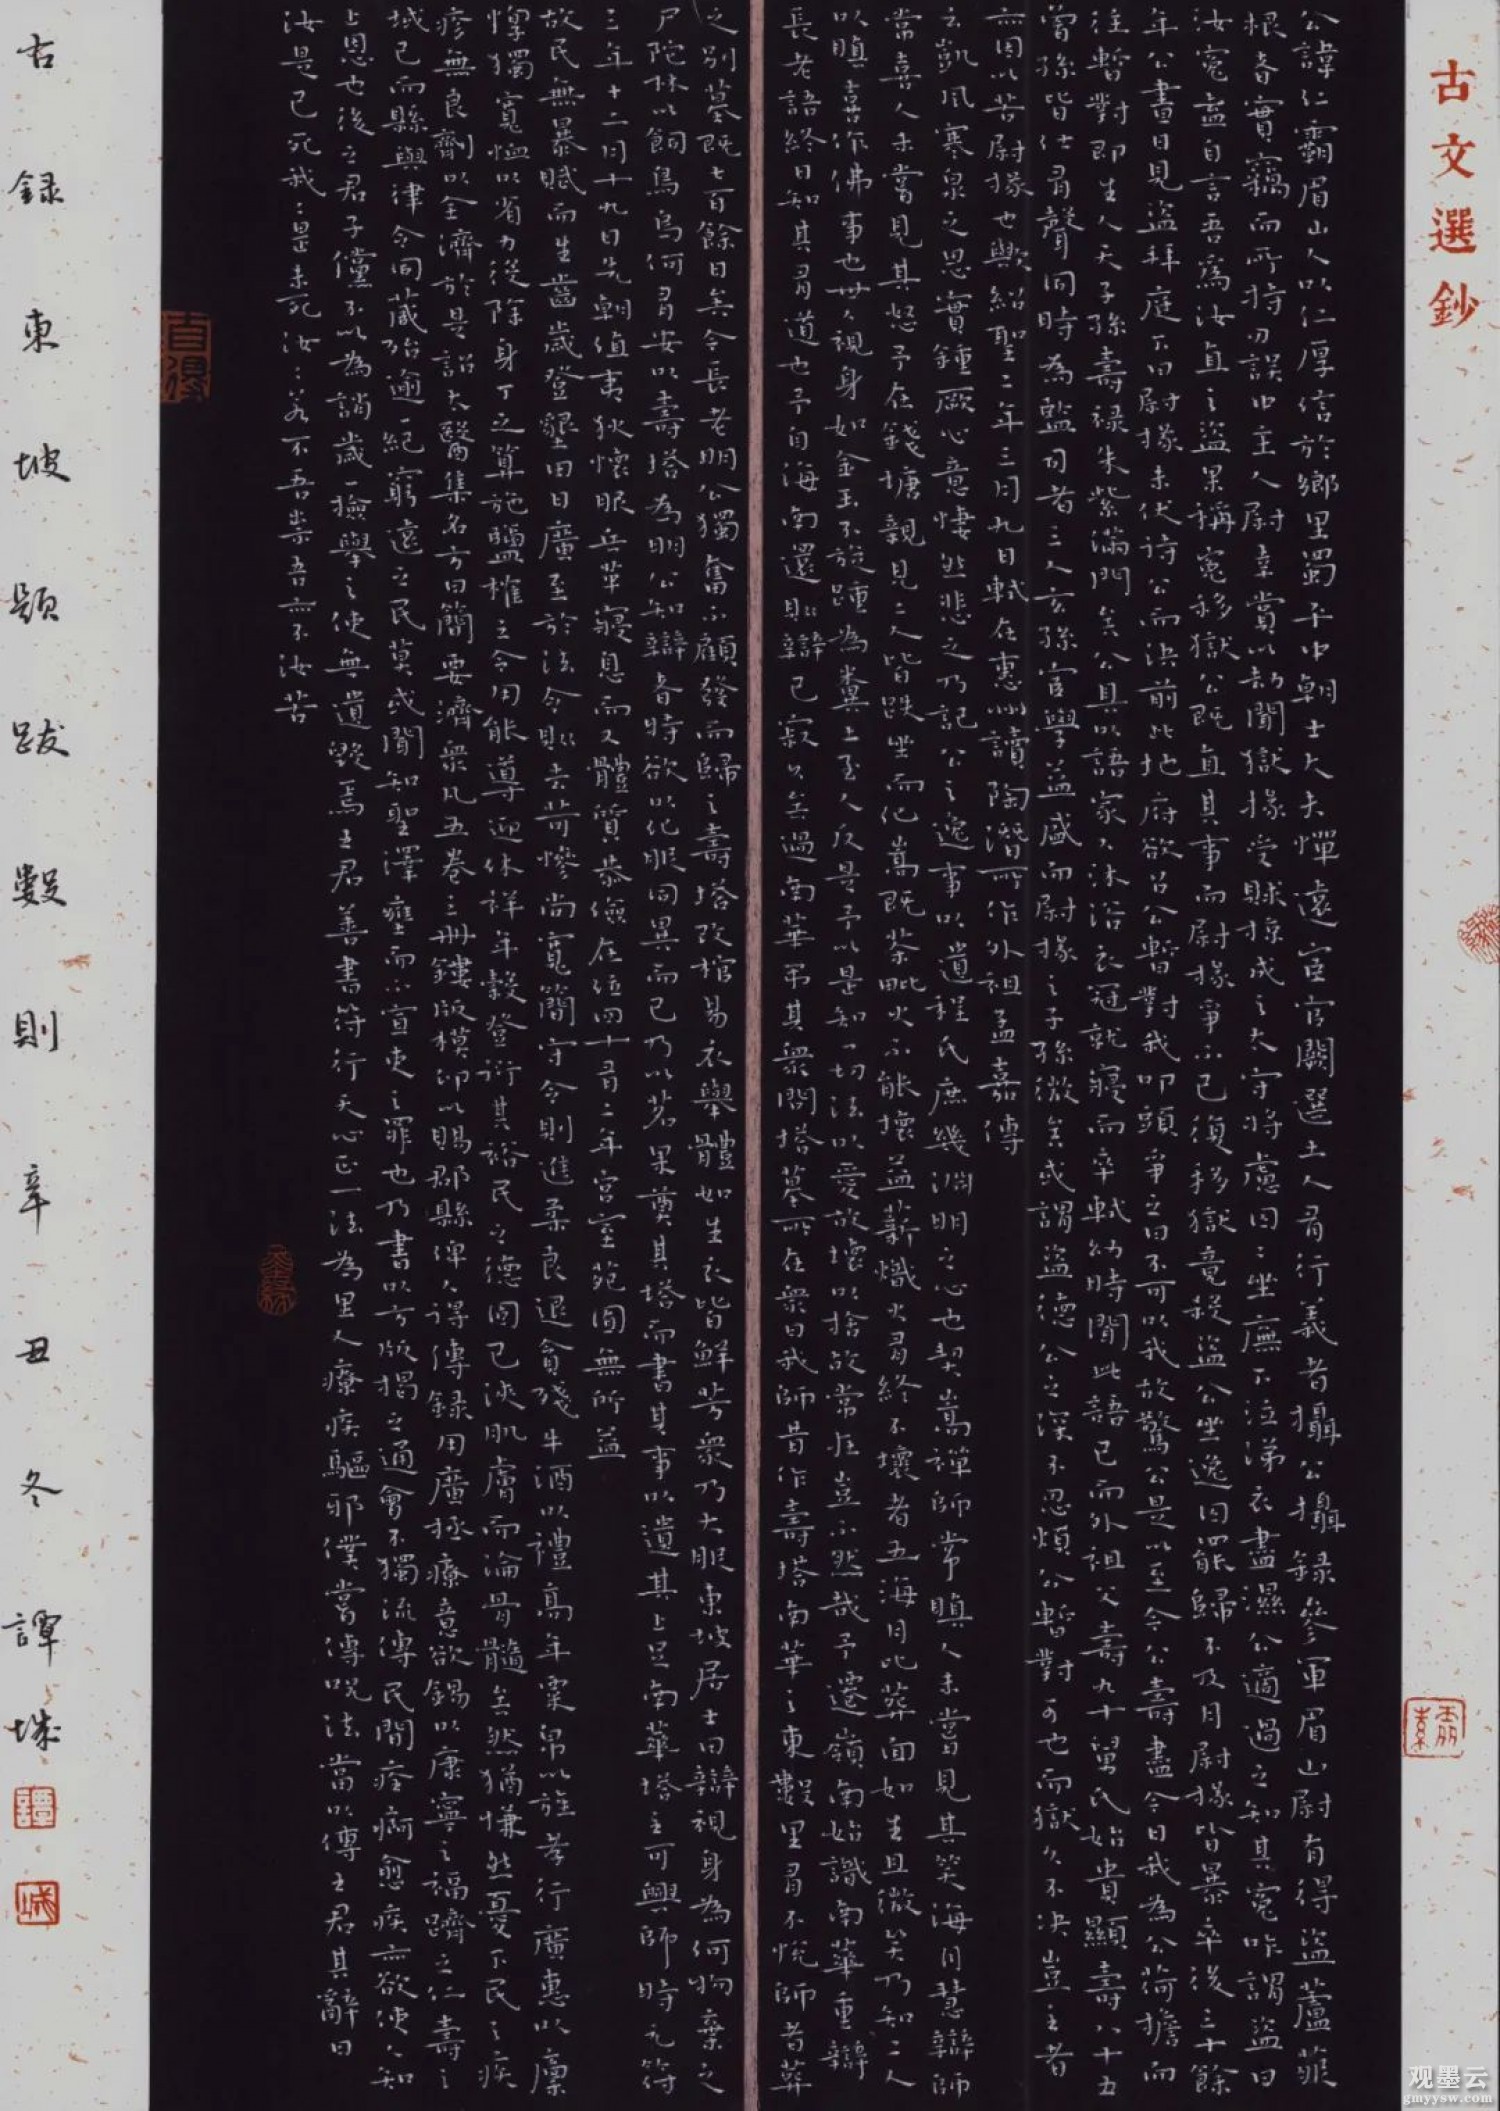 古文選鈔
公諱仁霸眉山人以仁厚信於鄉里蜀平中朝士大夫憚遠宦官闕選土人有行義者攝公攝録參軍眉山尉有得盜蘆菔
根者實竊而所持刃誤中主人尉幸賞以劫聞獄掾受賕掠成之太守將慮囚〻坐廡下泣涕衣盡濕公適過之知其冤咋謂盜曰
汝冤盍自言吾爲汝直之盜果稱冤移獄公既直其事而尉掾爭不已復移獄竟殺盜公坐逸囚罷歸不及月尉掾皆暴卒後三十餘
年公晝日見盜拜庭下曰尉掾未伏待公而決前此地府欲召公暫對我叩頭爭之曰不可以我故驚公是以至今公壽盡今日我為公荷擔而
往暫對即生人天子孫壽祿朱紫滿門矣公具以語家人沐浴衣冠就寢而卒軾幼時聞此語已而外祖父壽九十舅氏始貴顯壽八十五
曾孫皆仕有聲同時為監司者三人玄孫宦學益盛而尉掾之子孫微矣或謂盜德公之深不忍煩公暫對可也而獄久不決豈主者
亦因以苦尉掾也歟紹聖二年三月九日軾在惠州讀陶潛所作外祖孟嘉傳
云凱風寒泉之思實鍾厥心意悽然悲之乃記公之逸事以遺程氏庶幾淵明之心也契嵩禪師常瞋人未嘗見其笑海月慧辯師
常喜人未嘗見其怒予在錢塘親見二人皆趺坐而化嵩既荼毗火不能壞益薪熾火有終不壞者五海月比葬面如生且微笑乃知二人
以瞋喜作佛事也世人視身如金玉不旋踵為糞土至人反是予以是知一切法以愛故壞以捨故常在豈不然哉予遷嶺南始識南華重辯
長老語終日知其有道也予自海南還則辯已寂久矣過南華弔其眾問塔墓所在眾曰我師昔作壽塔南華之東數里有不悅師者葬
之別墓既七百餘日矣今長老明公獨奮不顧發而歸之壽塔改棺易衣舉體如生衣皆鮮芳眾乃大服東坡居士曰辯視身為何物棄之
尸陀林以飼鳥烏何有安以壽塔為明公知辯者特欲以化服同異而已乃以茗果奠其塔而書其事以遺其上足南華塔主可興師時元符
三年十二月十九日先朝值夷狄懷服兵革寢息而又體質恭儉在位四十有二年宮室苑囿無所益
故民無暴賦而生齒歲登墾田日廣至於法令則去苛慘尚寬簡守令則進柔良退貪殘牛酒以禮高年粟帛以旌孝行廣惠以廩
惸獨寬恤以省力役除身丁之算弛鹽榷之令用能導迎休祥年穀登衍其裕民之德固已浹肌膚而淪骨髓矣然猶慊然憂下民之疾
疹無良劑以全濟於是詔太醫集名方曰簡要濟眾凡五卷三冊鏤版模印以賜郡縣俾人得傳録用廣拯療意欲錫以康寧之福躋之仁壽之
域已而縣與律令同藏殆逾一紀窮遠之民莫或聞知聖澤壅而不宣吏之罪也乃書以方版揭之通會不獨流傳民間痊痾愈疾亦欲使人知
上恩也後之君子儻不以為誚歲一撿舉之使無遺毀焉王君善書符行天心正一法為里人療疾驅邪僕嘗傳咒法當以傳王君其辭曰
汝是已死我〻是未死汝〻若不吾祟吾亦不汝苦
古録東坡題跋數則辛丑冬譚城
觀墨云
gmyysw.com